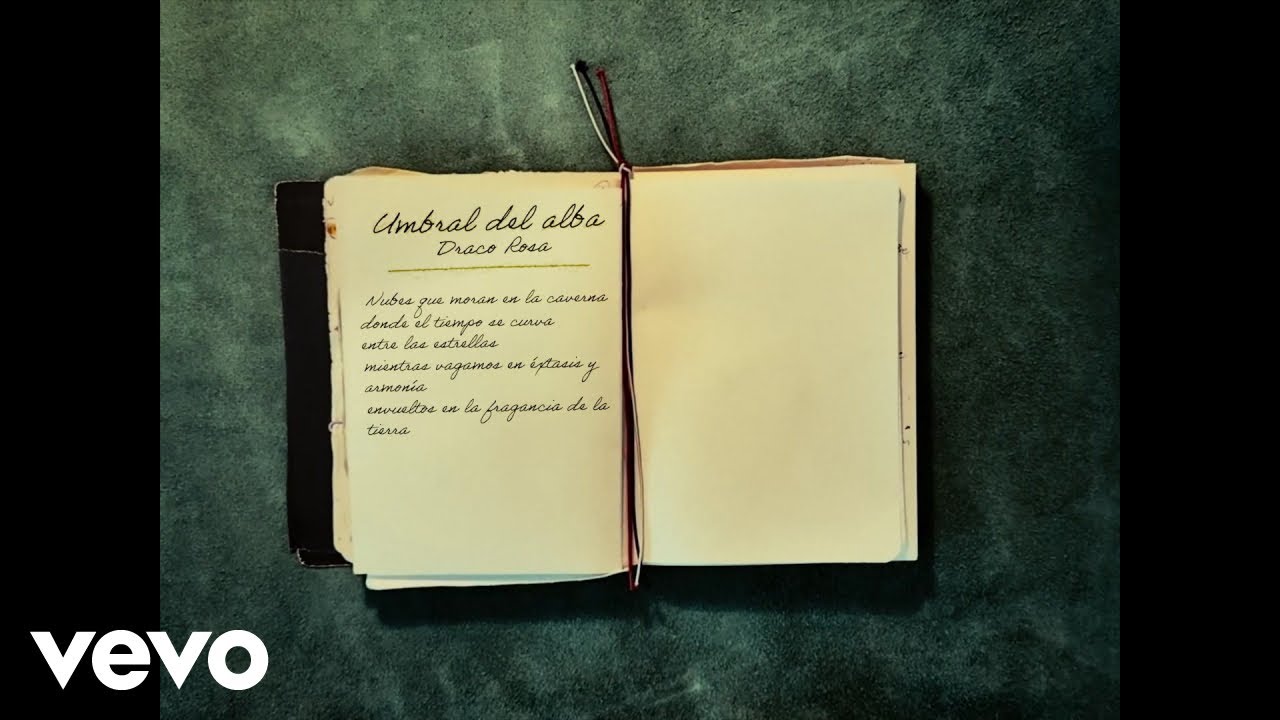 Umbral del alba
Draco Rosa
Nubes que moran en la caverna
donde el tiempo se curva
entre las estrellas
mientras vagamos en éxtasis y
armonía
envueltos en la fragancia de la
tierra
vevo